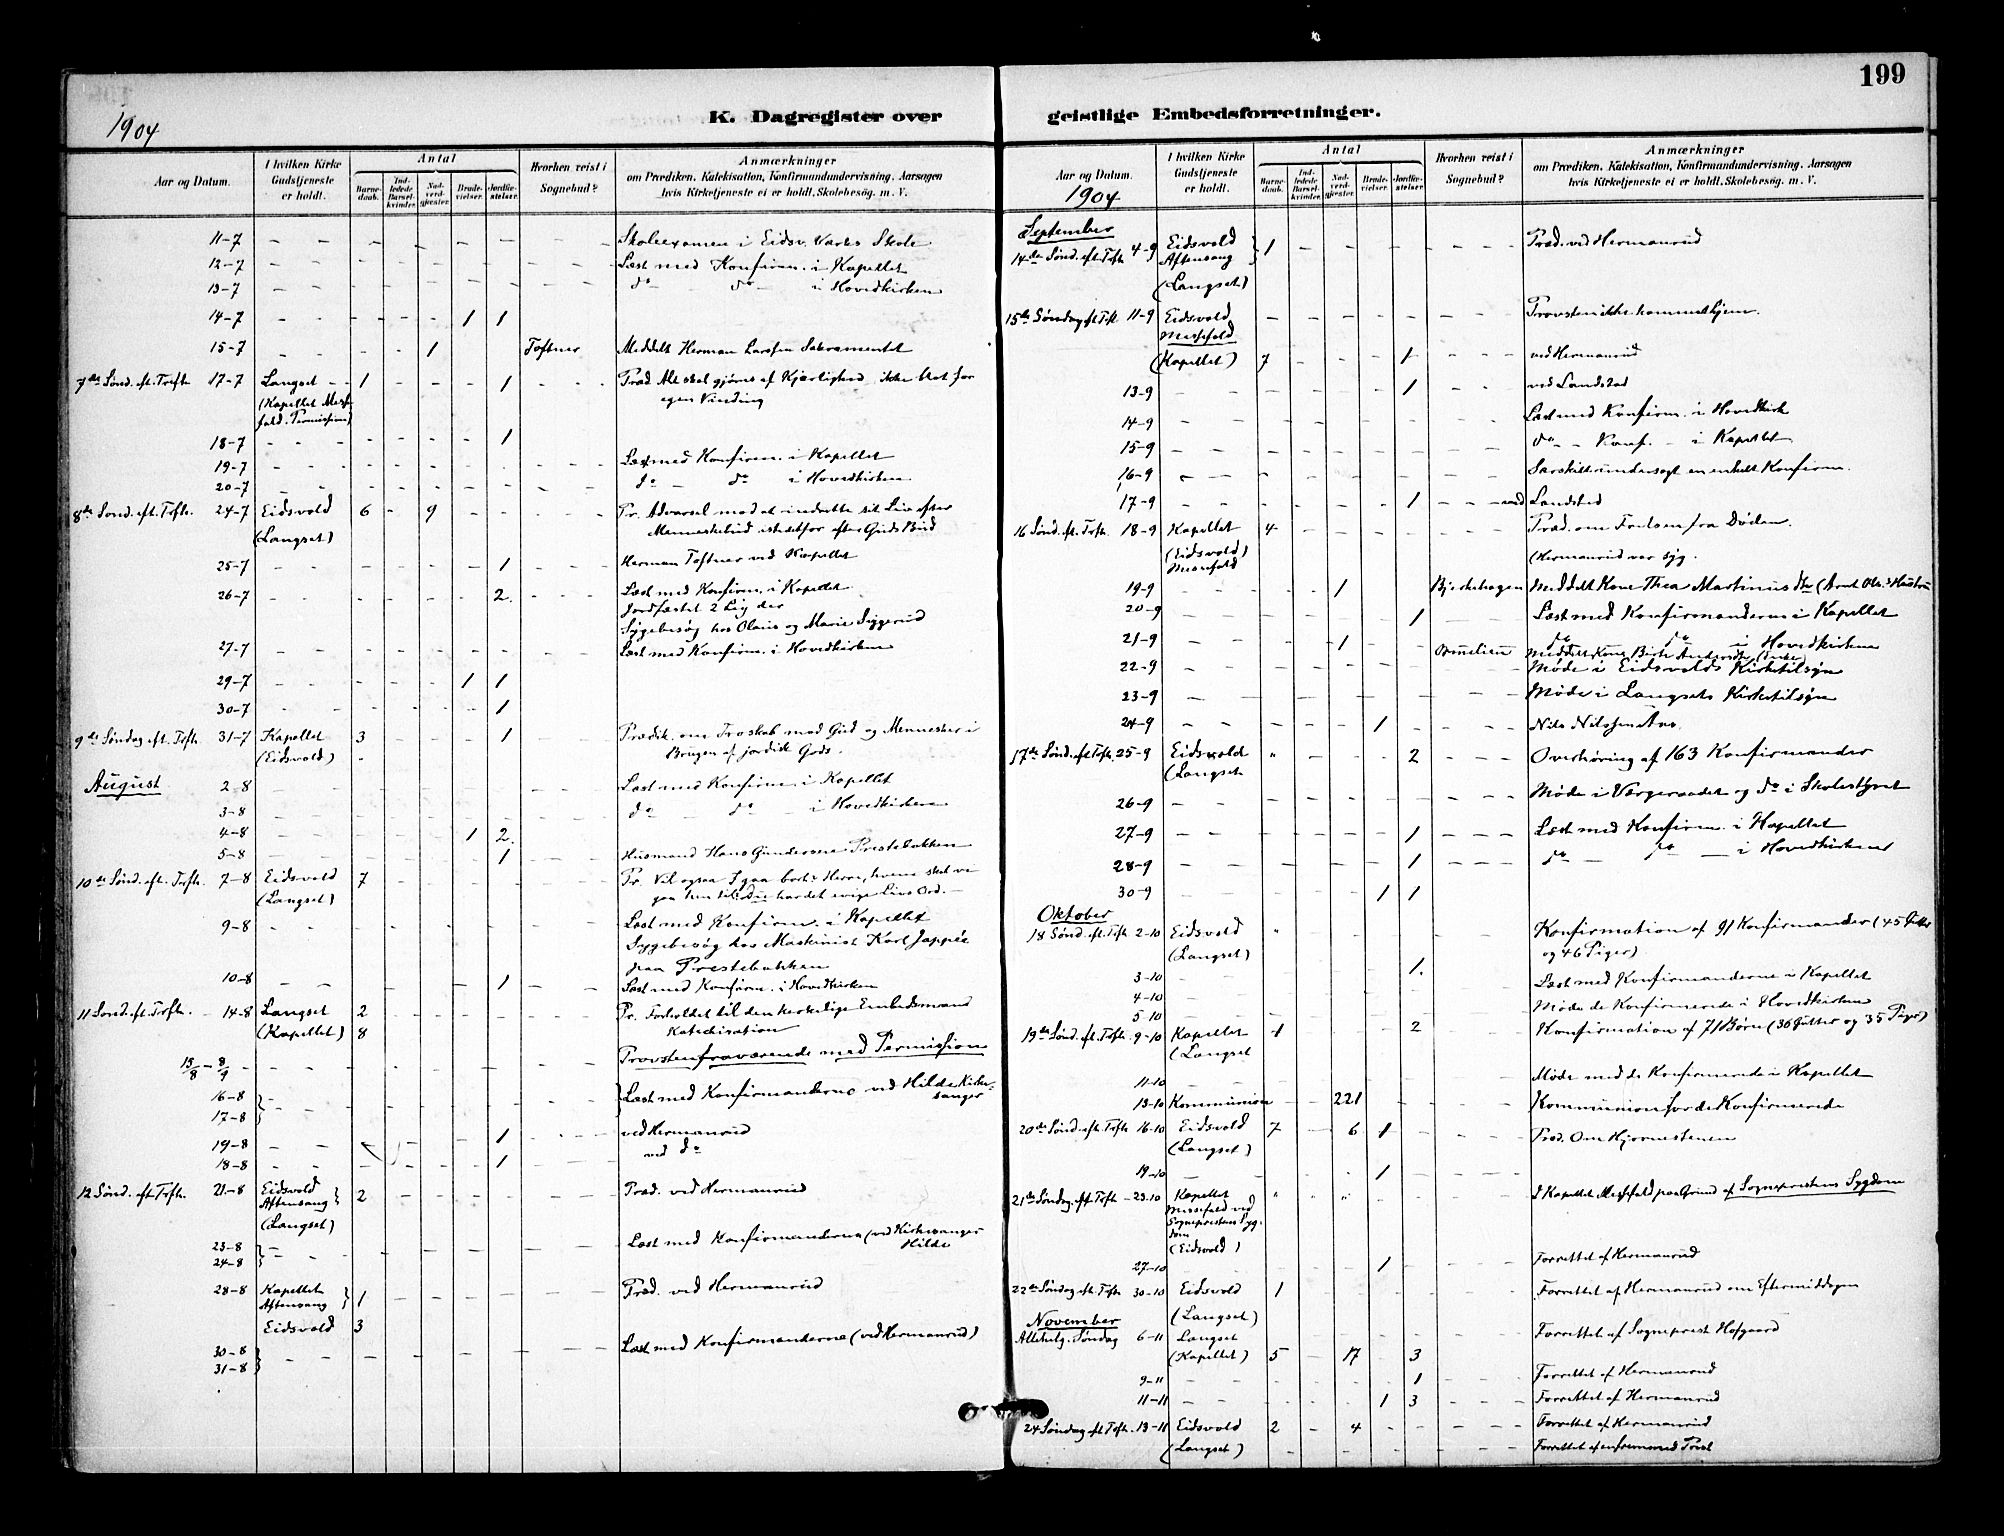 199
1904
K. Dagregister over geistlige Embedsforretninger.
Aar og Datum.
I hvilken Kirke Gudstjeneste er holdt.
Antal
Barne-daab.
Ind-ledede Barsel-kvinder.
Nad-verd-gjester.
Brude-vielser.
Jordfæ-stelser.
Hvorhen reist i Sognebud?
Anmærkninger
om Prædiken, Katekisation, Konfirmandundervisning, Aarsagen
hvis Kirketjeneste ei er holdt, Skolebesøg. m. V.
11-7 Skoleexamen i Eidsv. Værks Skole
12-7 Læst med Konfirm. i Kapellet
13-7 do do i Hovedkirken
14-7 1 1
15-7 1 Toftner Meddelt Herman Larsen Sakramentet
7de Sønd. eft. Trefh. 17-7 Langset 1 1 Præd Alt skal gjøres af Kjærlighed ikke blot for
(Kapellet Messe- egen Vinding
fald. Permission)
18-7 1
19-7 Læst med Konfirm. i Kapellet
20-7 do do i Hovedkirken
8de Sønd. eft. Trefh. 24-7 Eidsvold 6 9 Pr. Advarsel mod at indrette sit Liv efter
(Langset) Menneskebud istedetfor efter Guds Bud
25-7 1 Herman Toftner ved Kapellet
26-7 2. Læst med Konfirm. i Kapellet
Jordfæstet 2 Lig der
Sygebesøg hos Olaus og Marie Syggerud
27-7 Læst med Konfirm. i Hovedkirken
29-7 1 1
30-7 1
9de Søndag eft. Trefh. 31-7 Kapellet 3 1 Prædik. om Troskab mod Gud og Mennesker i
(Eidsvold) Brugen af jordisk Gods.
August 2-8 Læst med Konfirm i Kapellet
3-8 do do i Hovedkirken
4-8 1 2.
5-8 1 Husmand Hans Gundersen Prestebakken
10de Sønd. eft. Trefh. 7-8 Eidsvold 7 Pr. Vil ogsaa I gaa bort? Herre, hvem skal vi
(Langset) gaa hen til? Du har det evige Livs Ord.
9-8 Læst med Konfirm. i Kapellet
Sygebesøg hos Maskinist Karl Jappée
paa Prestebakken
10-8 1 Læst med Konfirm. i Hovedkirken
11 Sønd. eft. Trefh. 14-8 Langset 2 Pr. Forholdet til den kirkelige Embedsmand
(Kapellet) 8 Katechisation
15/8 - 8/9 Provsten fraværende med Permission
16-8 Læst med Konfirmanderne ved Hilde Kirke-
17-8 sanger
19-8 1 ved Hermanrud
18-8 1 ved do
12 Sønd. eft. Trefh. 21-8 Eidsvold 2 Præd. ved Hermanrud
Aftensang
(Langset)
23-8 Læst med Konfirmanderne (ved Kirkesanger
24-8 Hilde
28-8 Kapellet 1 Præd. ved Hermanrud
Aftensang
Eidsvold 3
30-8 Læst med Konfirmanderne (ved Hermanrud)
31-8
Aar og Datum.
1904
I hvilken Kirke Gudstjeneste er holdt.
Antal
Barne-daab.
Ind-ledede Barsel-kvinder.
Nad-verd-gjester.
Brude-vielser.
Jordfæ-stelser.
Hvorhen reist i Sognebud?
Anmærkninger
om Prædiken, Katekisation, Konfirmandundervisning, Aarsagen
hvis Kirketjeneste ei er holdt, Skolebesøg. m. V.
September
14de Sønd. eft. Trfh 4-9 Eidsvold 1 Præd. ved Hermanrud
Aftensang
(Langset)
15de Søndag eft Trfh. 11-9 Eidsvold Provsten ikke kommet hjem.
Messefald
(Kapellet) 7 1 ved Hermanrud
13-9 1 ved Landstad
14-9 Læst med Konfirm. i Hovedkirk
15-9 do Konf. i Kapellet
16-9 Særskilt undersøgt en enkelt Konfirm.
17-9 1 ved Landstad
16 Sønd. eft. Trfh. 18-9 Kapellet 4 Præd. om Frelsen fra Døden.
(Eidsvold) (Hermanrud var syg.
Messefald
19-9 1 Bjerkehagen Meddelt Kone Thea Martinusdtr
20-9 1 Læst med Konfirmanderne i Kapellet
21-9 1 do do i Hovedkirken
Meddelt Kone
22-9 Møde i Eidsvolds Kirketilsyn
23-9 Møde i Langsets Kirketilsyn
24-9 1 Nils Nilssen
17de Sønd. eft Trfh. 25-9 Eidsvold " 2 Overhøring af 163 Konfirmander
(Langset
26-9 Møde i Vergeraadet og do i Skolestyret
27-9 1 Læst med Konfirm. i Kapellet
28-9 1 do do i Hovedkirken
30-9 1 1
Oktober
18 Sønd. eft. Trfh 2-10 Eidsvold " Konfirmation af 91 Konfirmander (45 Gutter
(Langset) og 46 Piger)
3-10 1. Læst med Konfirmanderne i Kapellet
4-10 Møde de Konfirmerede i Hovedkirken
5-10
19de Sønd. eft Trfh. 9-10 Kapellet 1 2 Konfirmation af 71 Børn (36 Gutter og 35 Piger)
(Langset
11-10 Møde med de Konfirmerede i Kapellet
13-10 Kommunion 221 Kommunion for de Konfirmerede
20de Sønd. eft Trfh 16-10 Eidsvold 7 6 1 Præd. Om Hjørnestenen
(Langset)
19-10 1
21de Søndag. eft Trfh 23.10 Kapellet " " " I Kapellet Messefald paa Grund af Sogneprestens Sygdom
Messefald ved
Sogneprestens Syg-
dom
(Eidsvold)
27-10 1 Forrettet af Hermanrud
22de Søndag eft. Trfh 30-10 Eidsvold 1 Forrettet af Hermanrud om Eftermiddagen
(Langset)
November
Allehelg. Søndag 6-11 Langset Forrettet af Sogneprest Hofgaard
(Kapellet) 5 17 3
9-11 1 Forrettet af Hermanrud
11-11 1 3 Forrettet af Hermanrud
24 Søndag eft Trfh. 13-11 Eidsvold 2 4 Forrettet af Hermanrud
(Langset) Forrettet af en fremmed Prest